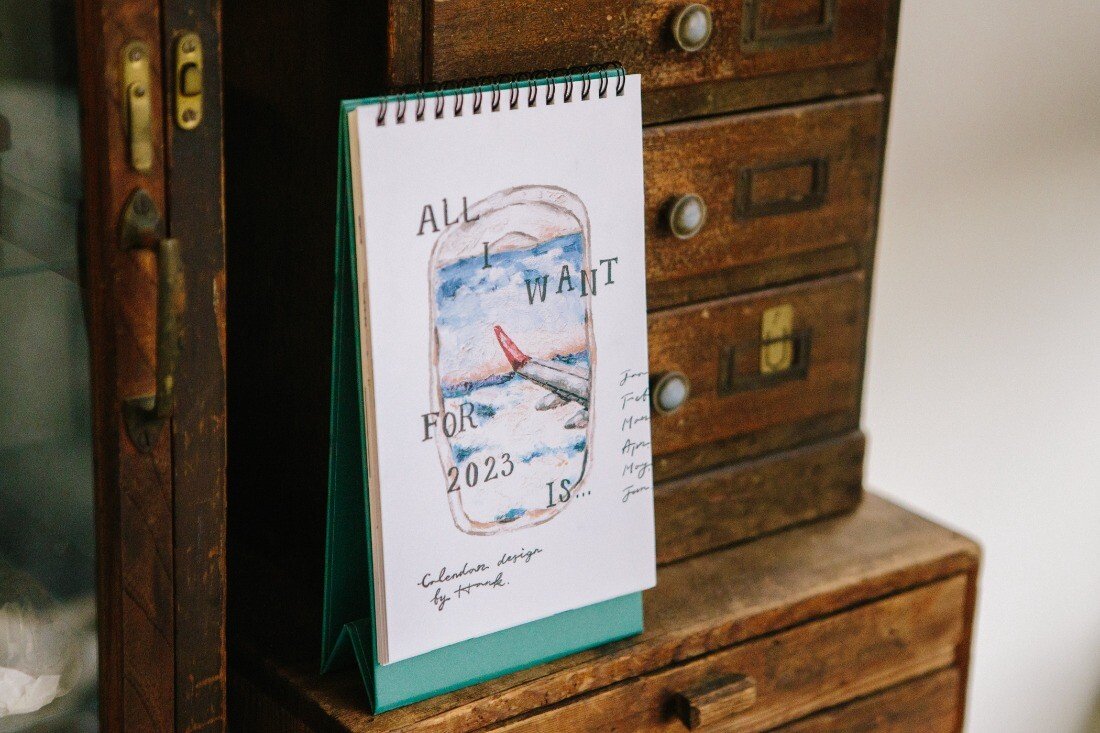 ALL
I
WANT
FOR
2023
IS...
Jan
Feb
Mar
Apr
May
Jun
Calendar design
by Hank.